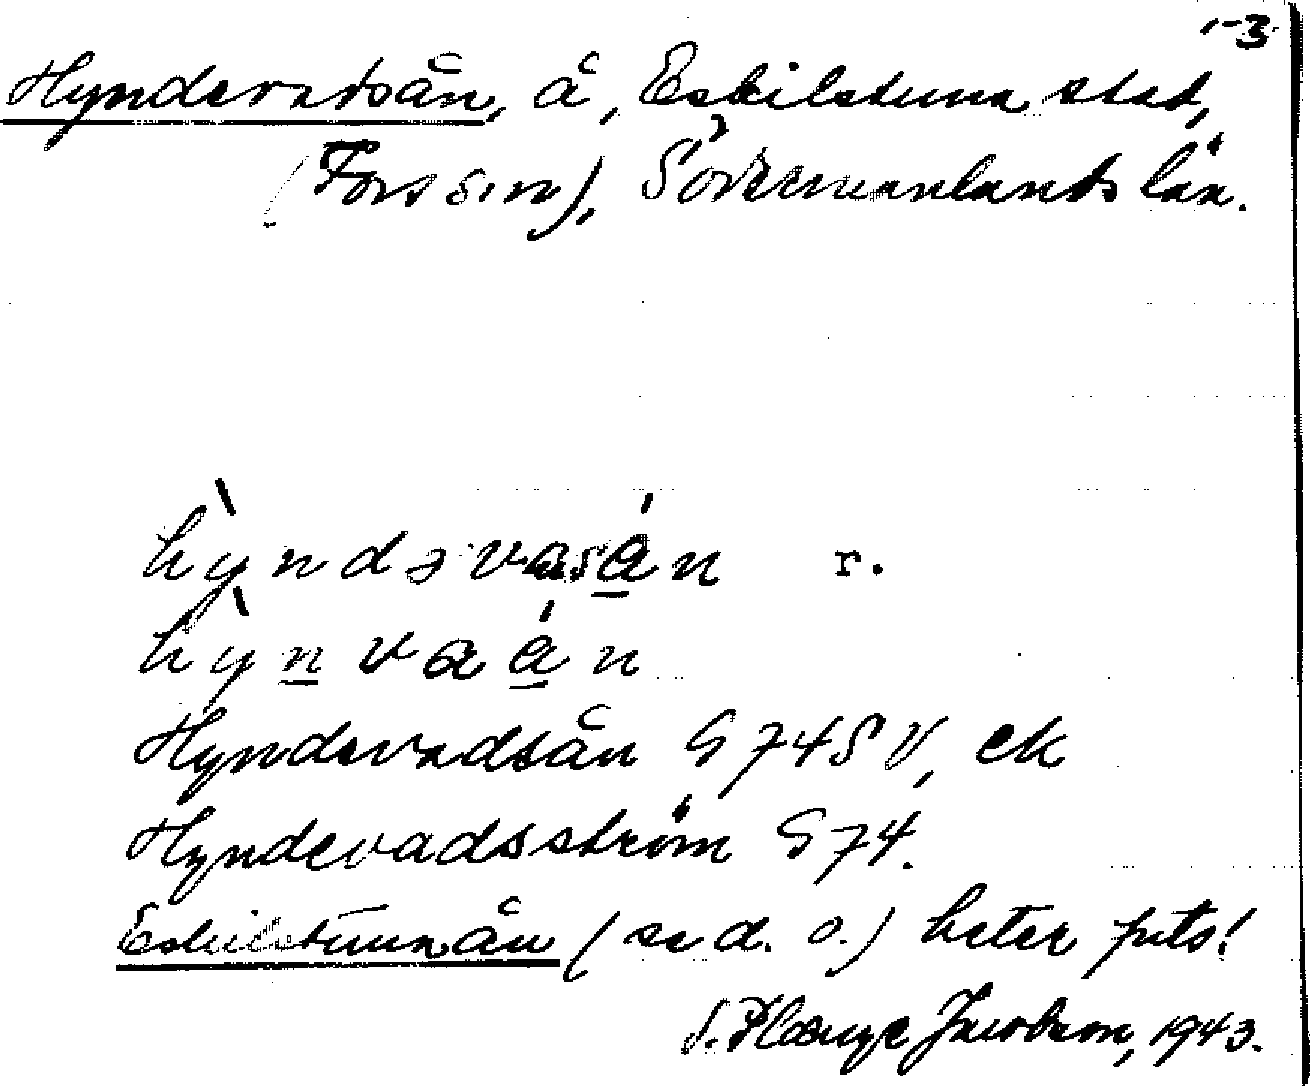 1-3
Hyndevadsån, å, Eskilstuna stad,
(Fors sn), Södermanlands län.
hỳndəvasán r.
hỳnvaán
Hyndevadsån G 74 S V, ek
Hyndevadsström G 74.
Eskilstunaån (se d. o.) heter
S. Plænge Jacobson, 1943.